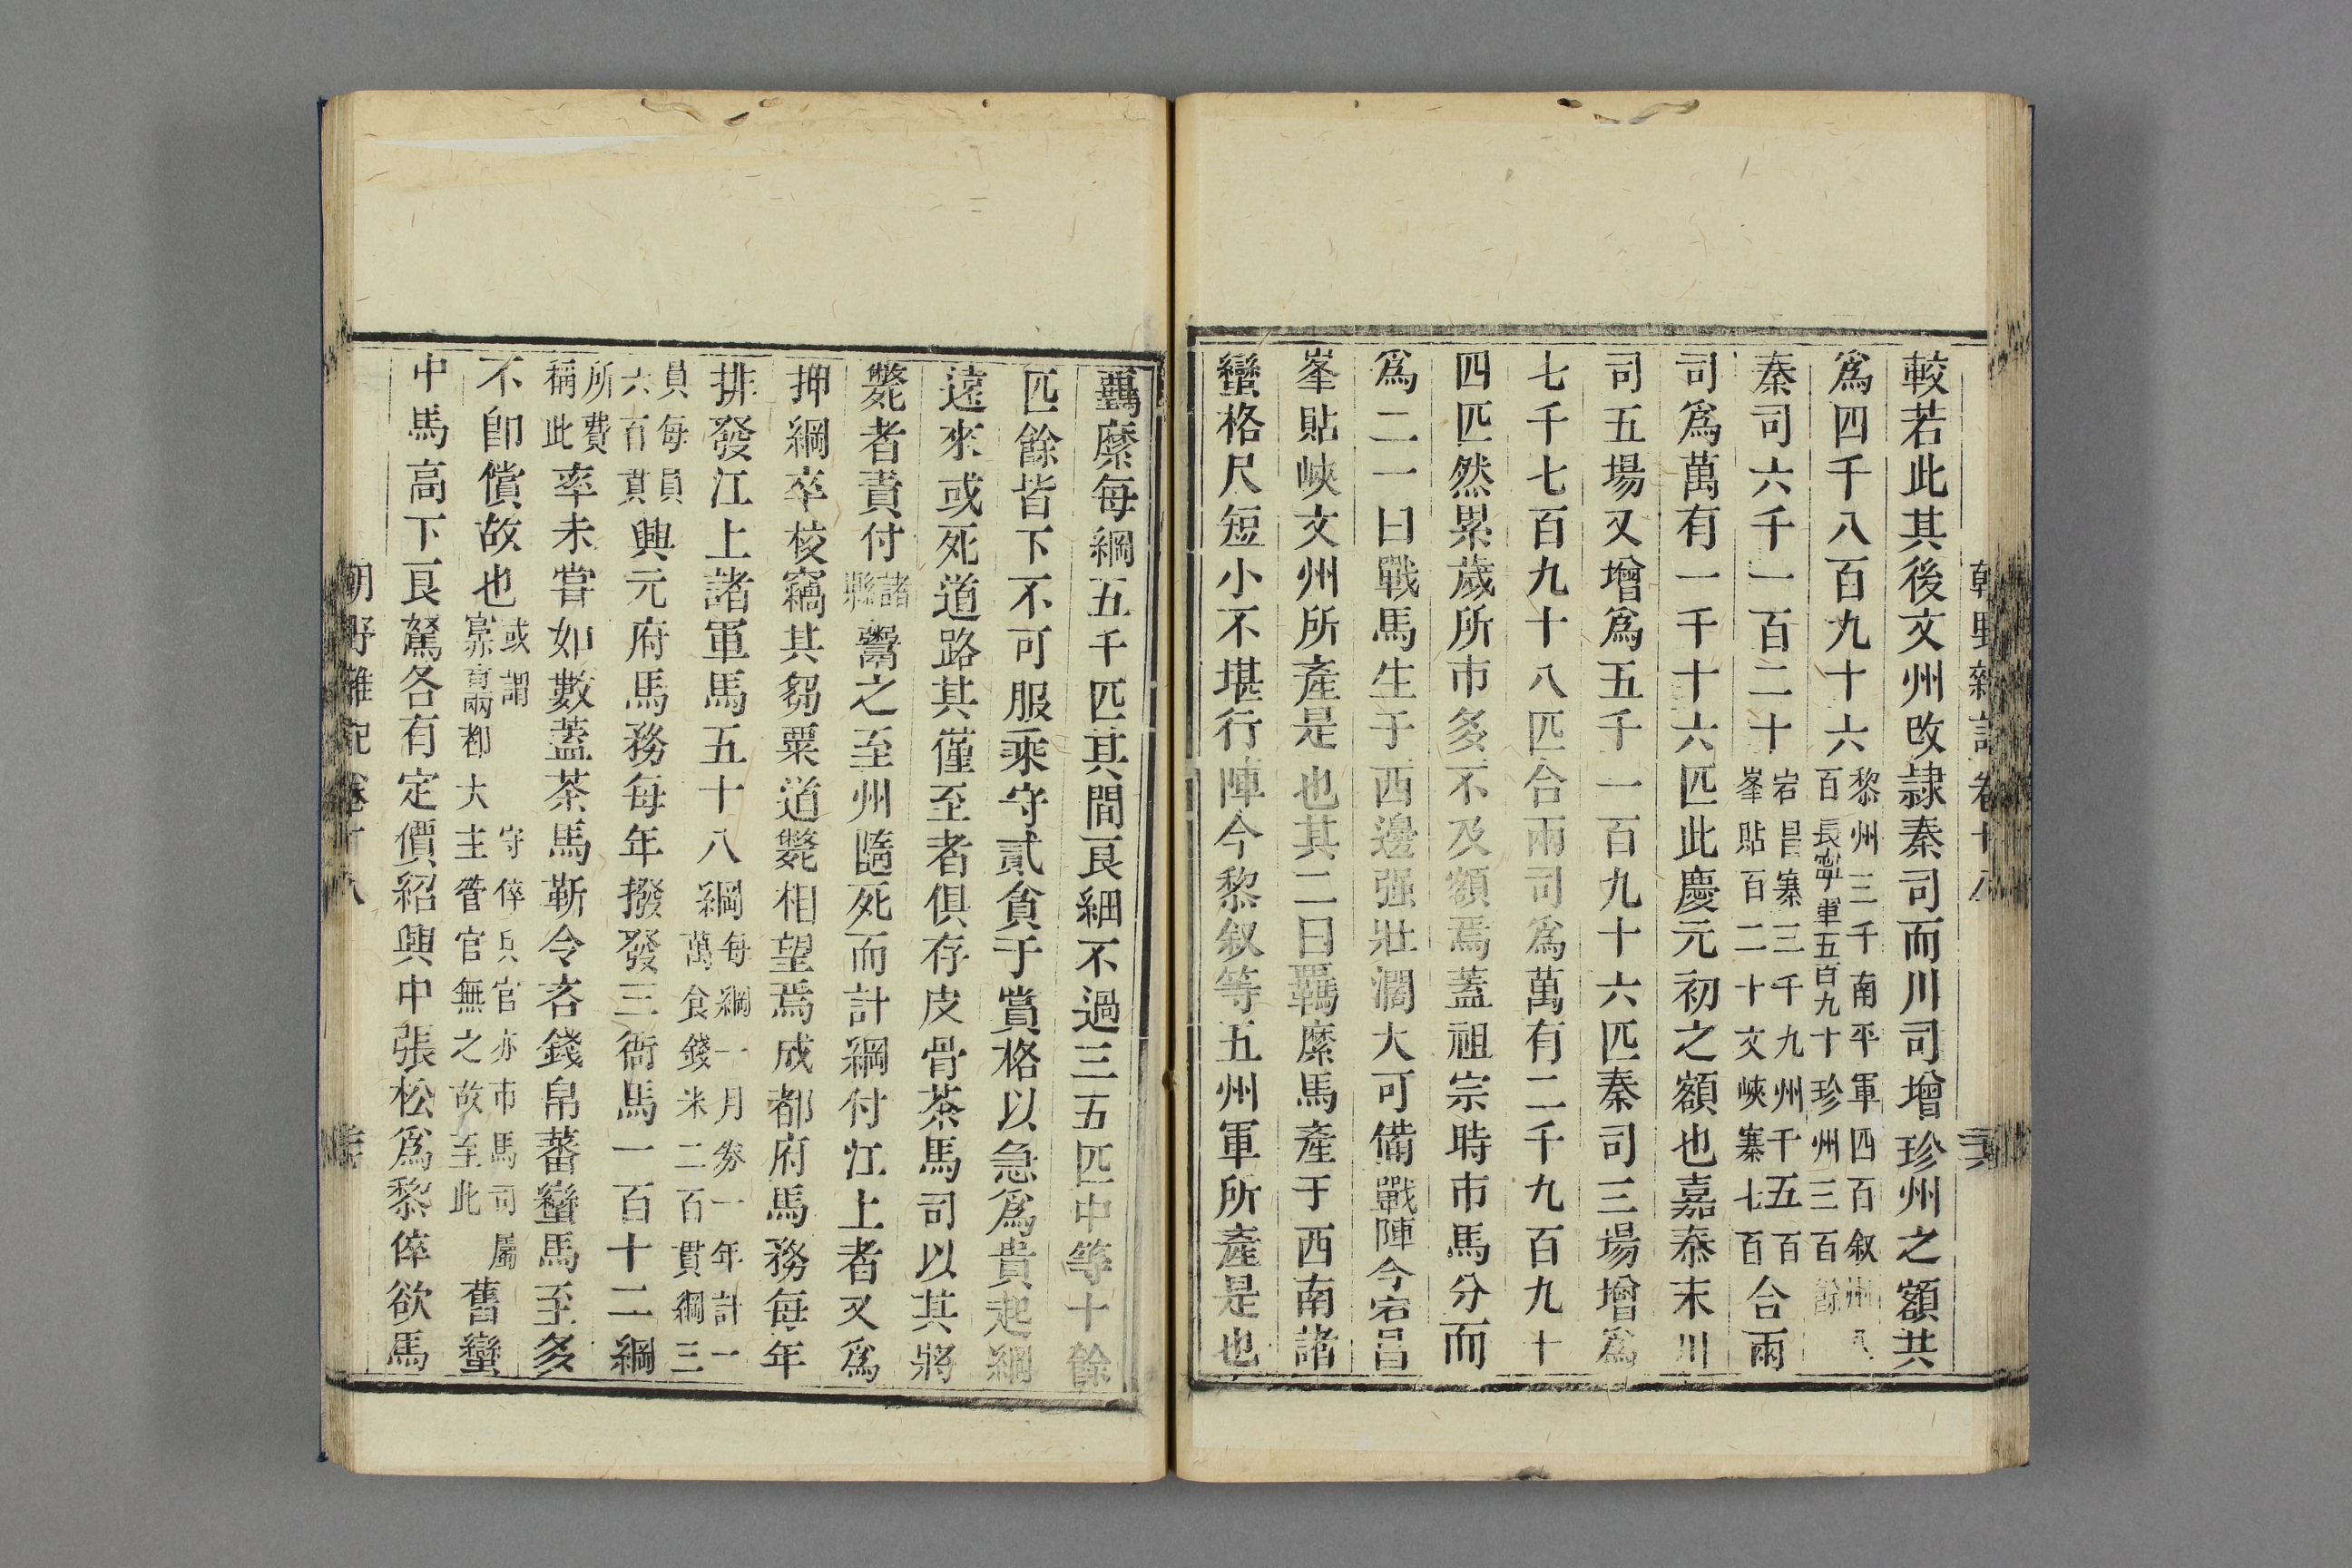 較若此其後文州改隷秦司而川司增珍州之額共
爲四千八百九十六黎州三千南平軍四百叙州八百長寧軍五百九十珍州三百餘
秦司六千一百二十宕昌寨三千九州千五百峯貼百二十文峽寨七百合兩
司爲萬有一千十六匹此慶元初之額也嘉泰末川
司五場又增爲五千一百九十六匹秦司三場增爲
七千七百九十八匹合兩司爲萬有二千九百九十
四匹然累歲所市多不及額焉蓋祖宗時市馬分而
爲二一曰戰馬生于西邊强壯濶大可備戰陣今宕昌
峯貼峽文州所產是也其二曰羈縻馬產于西南諸
蠻格尺短小不堪行陣今黎叙等五州軍所產是也
羈縻每綱五千匹其間良細不過三五匹中等十餘
匹餘皆下不可服乘守貳貪于賞格以急爲貴起綱
遠來或死道路其僅至者俱存皮骨茶馬司以其將
斃者責付諸縣鬻之至州隨死而計綱付江上者又爲
押綱卒校竊其芻粟道斃相望焉成都府馬務每年
排發江上諸軍馬五十八綱每綱一月券一年計一萬食錢米二百貫綱三
員每員六百貫興元府馬務每年撥發三衙馬一百十二綱
所費稱此率未嘗如數蓋茶馬靳令吝錢帛蕃蠻馬至多
不卽償故也或謂守倅兵官亦市馬司屬寮育兩都大主管官無之故至此舊蠻
中馬高下良駑各有定價紹興中張松爲黎倅欲馬